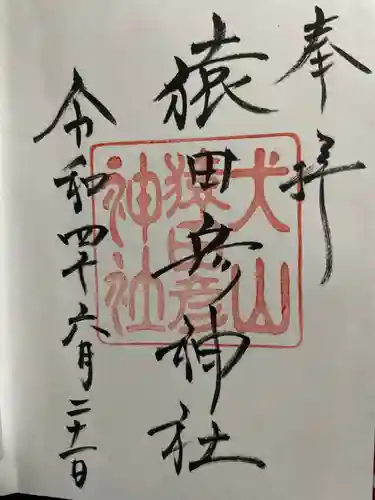 奉拝
猿田彦神社
犬山
猿田彦
神社
令和四年六月二十一日